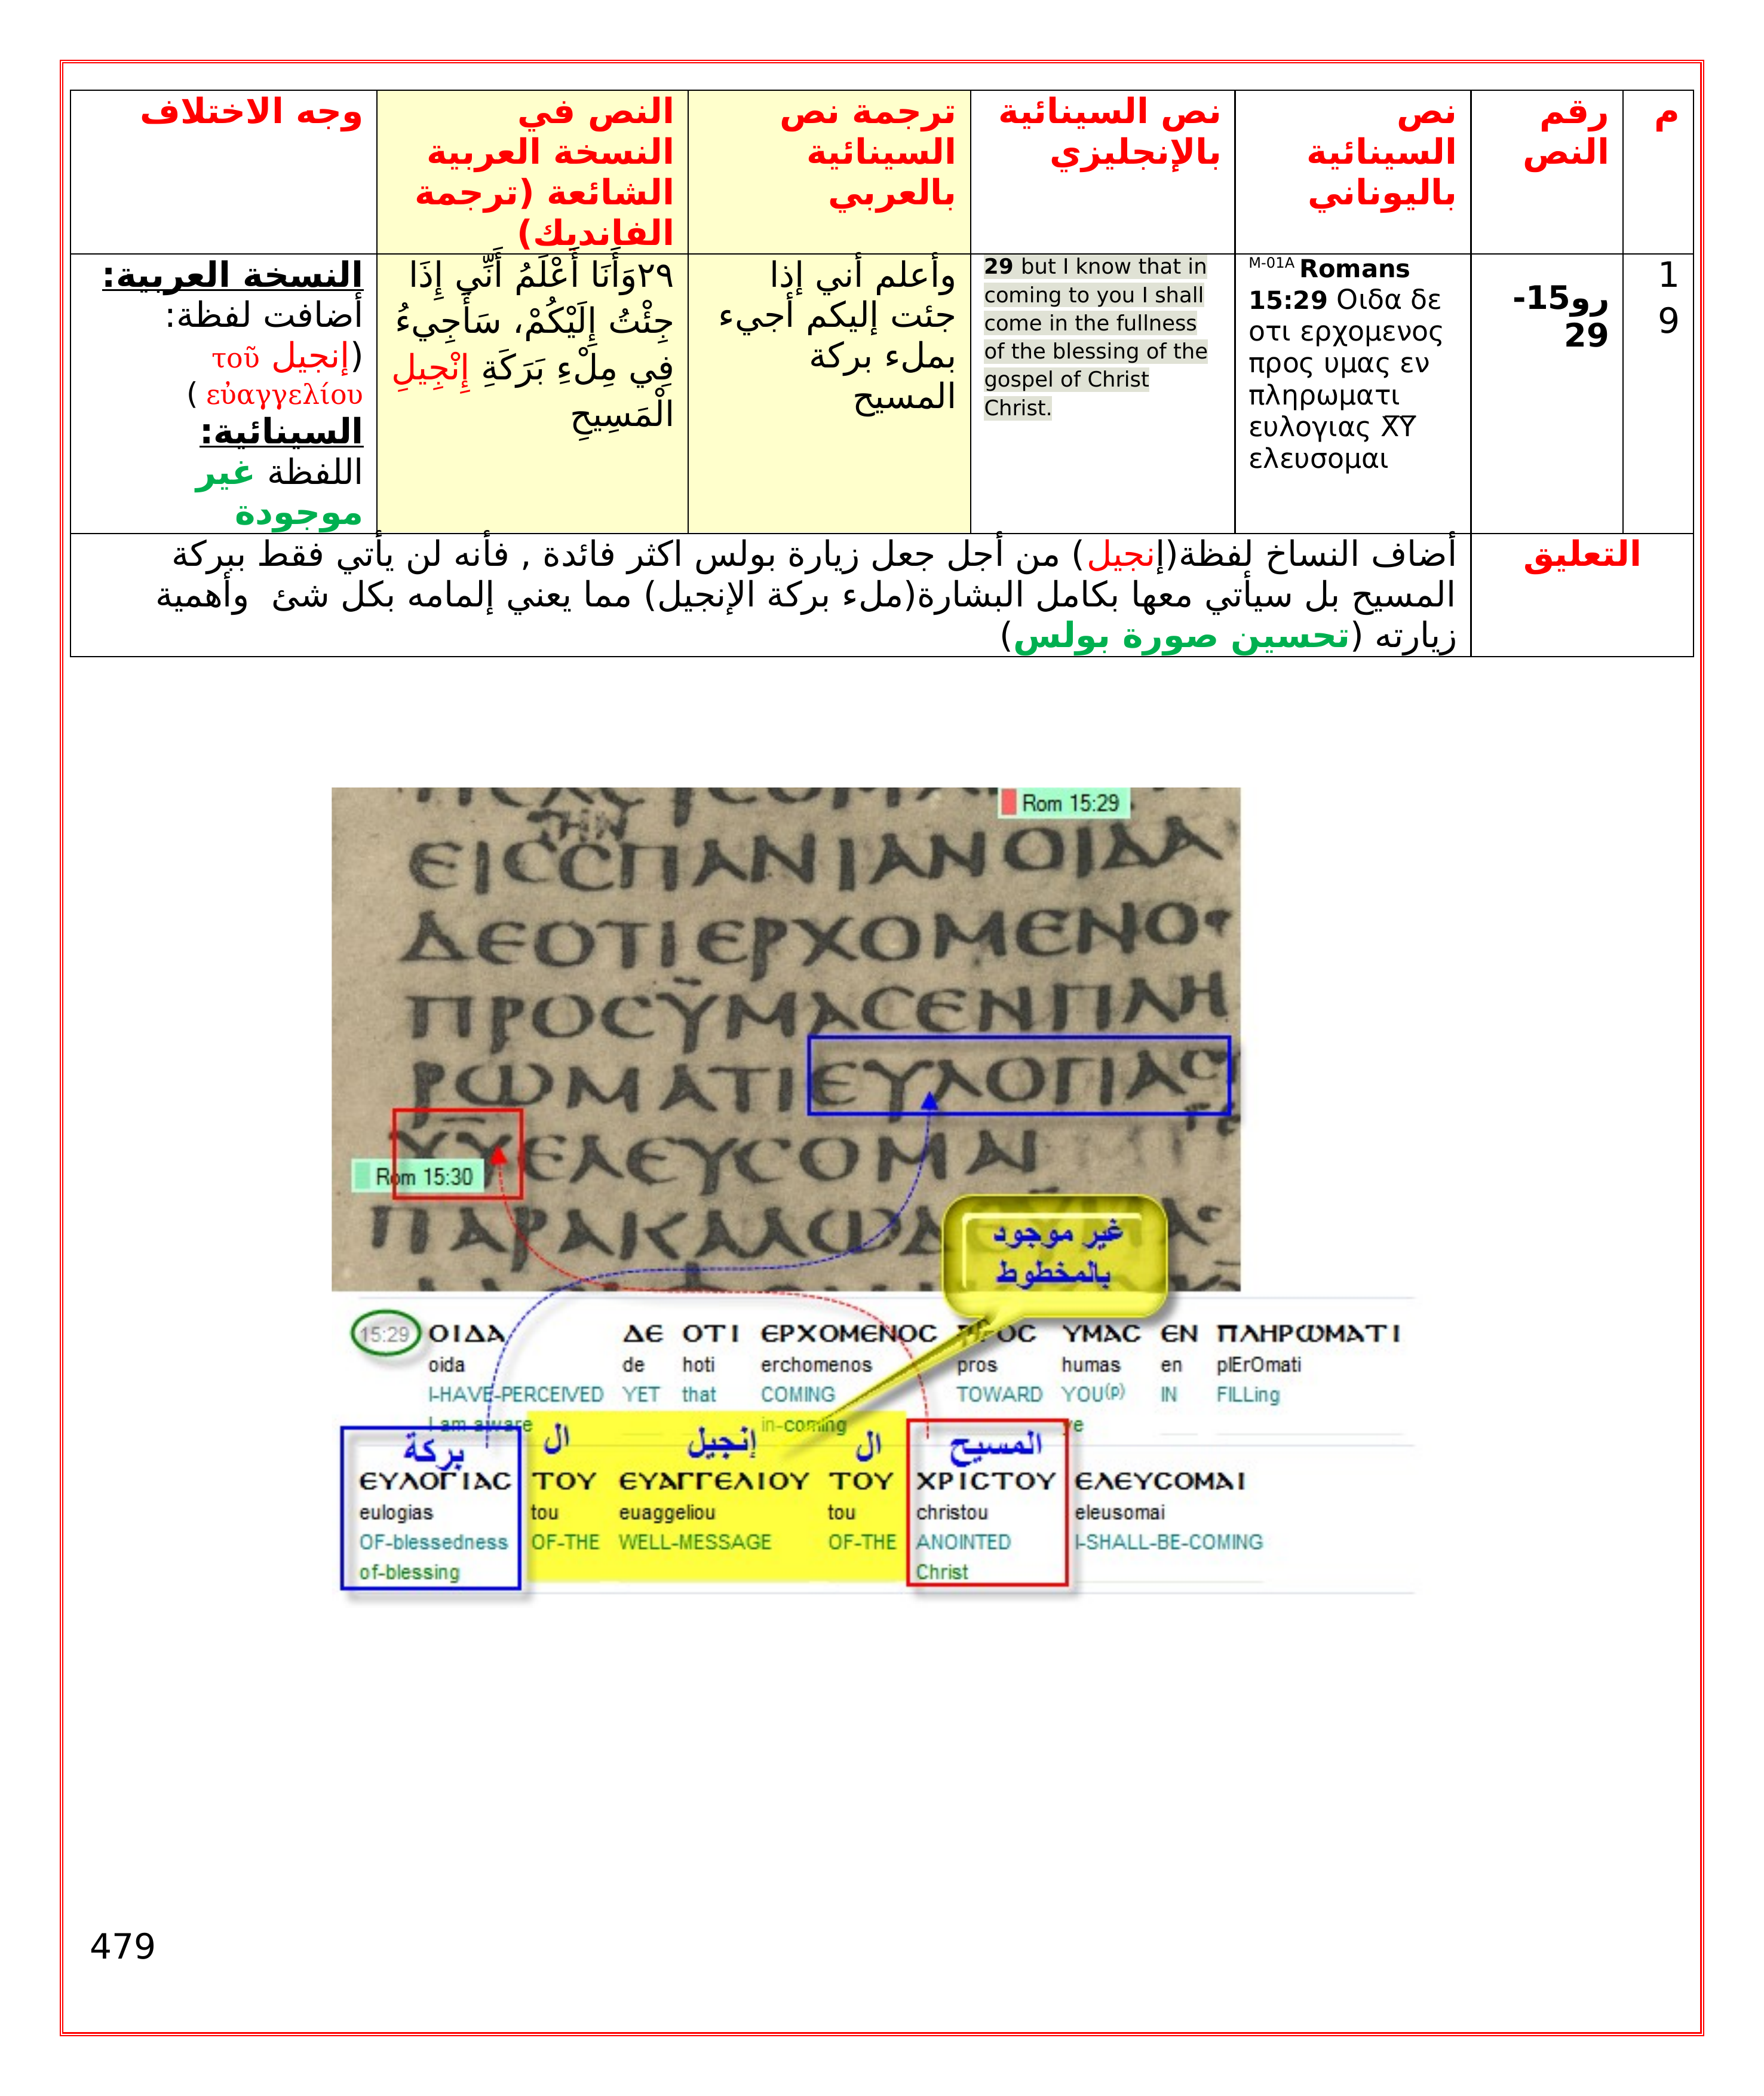 م
رقم
النص
نص
السينائية
باليوناني
نص السينائية
بالإنجليزي
ترجمة نص
السينائية
بالعربي
النص في
النسخة العربية
الشائعة (ترجمة
الفانديك)
وجه الاختلاف
1
9
رو15-
29
M-01A Romans
15:29 Οιδα δε
οτι ερχομενος
προς υμας εν
πληρωματι
ευλογιας Χ̅Υ̅
ελευσομαι
29 but I know that in
coming to you I shall
come in the fullness
of the blessing of the
gospel of Christ
Christ.
وأعلم أني إذا
جئت إليكم أجيء
بملء بركة
المسيح
٢٩وَأَنَا أَعْلَمُ أَنِّي إِذَا
جِئْتُ إِلَيْكُمْ، سَأَجِيءُ
فِي مِلْءِ بَرَكَةِ إِنْجِيلِ
الْمَسِيحِ
النسخة العربية:
أضافت لفظة:
(إنجيل τοῦ
εὐαγγελίου )
السينائية:
اللفظة غير
موجودة
التعليق
أضاف النساخ لفظة(إنجيل) من أجل جعل زيارة بولس اكثر فائدة , فأنه لن يأتي فقط ببركة
المسيح بل سيأتي معها بكامل البشارة(ملء بركة الإنجيل) مما يعني إلمامه بكل شئ  وأهمية
زيارته (تحسين صورة بولس)
Rom 15:29
ΤΗΝ
ΕΙCCΠΑΝΙΑΝΟΙΔΑ
ΔΕΟΤΙΕΡΧΟΜΕΝΟ
ΠΡΟCΫΜΑCΕΝΠΛΗ
ΡΩΜΑΤΙΕΥΛΟΓΙΑC
Χ̅Υ̅ΕΛΕΥCΟΜΑΙ
Rom 15:30
ΠΑΡΑΚΑΛΩΔ
غير موجود
بالمخطوط
15:29 ΟΙΔΑ ΔΕ ΟΤΙ ΕΡΧΟΜΕΝΟC ΠΡΟC ΥΜΑC ΕΝ ΠΛΗΡΩΜΑΤΙ
oida de hoti erchomenos pros humas en plErOmati
I-HAVE-PERCEIVED YET that COMING TOWARD YOU(p) IN FILLing
I am aware in-coming ye
بركة ال إنجيل ال المسيح
ΕΥΛΟΓΙΑC ΤΟΥ ΕΥΑΓΓΕΛΙΟΥ ΤΟΥ ΧΡΙCΤΟΥ ΕΛΕΥCΟΜΑΙ
eulogias tou euaggeliou tou christou eleusomai
OF-blessedness OF-THE WELL-MESSAGE OF-THE ANOINTED I-SHALL-BE-COMING
of-blessing Christ
479